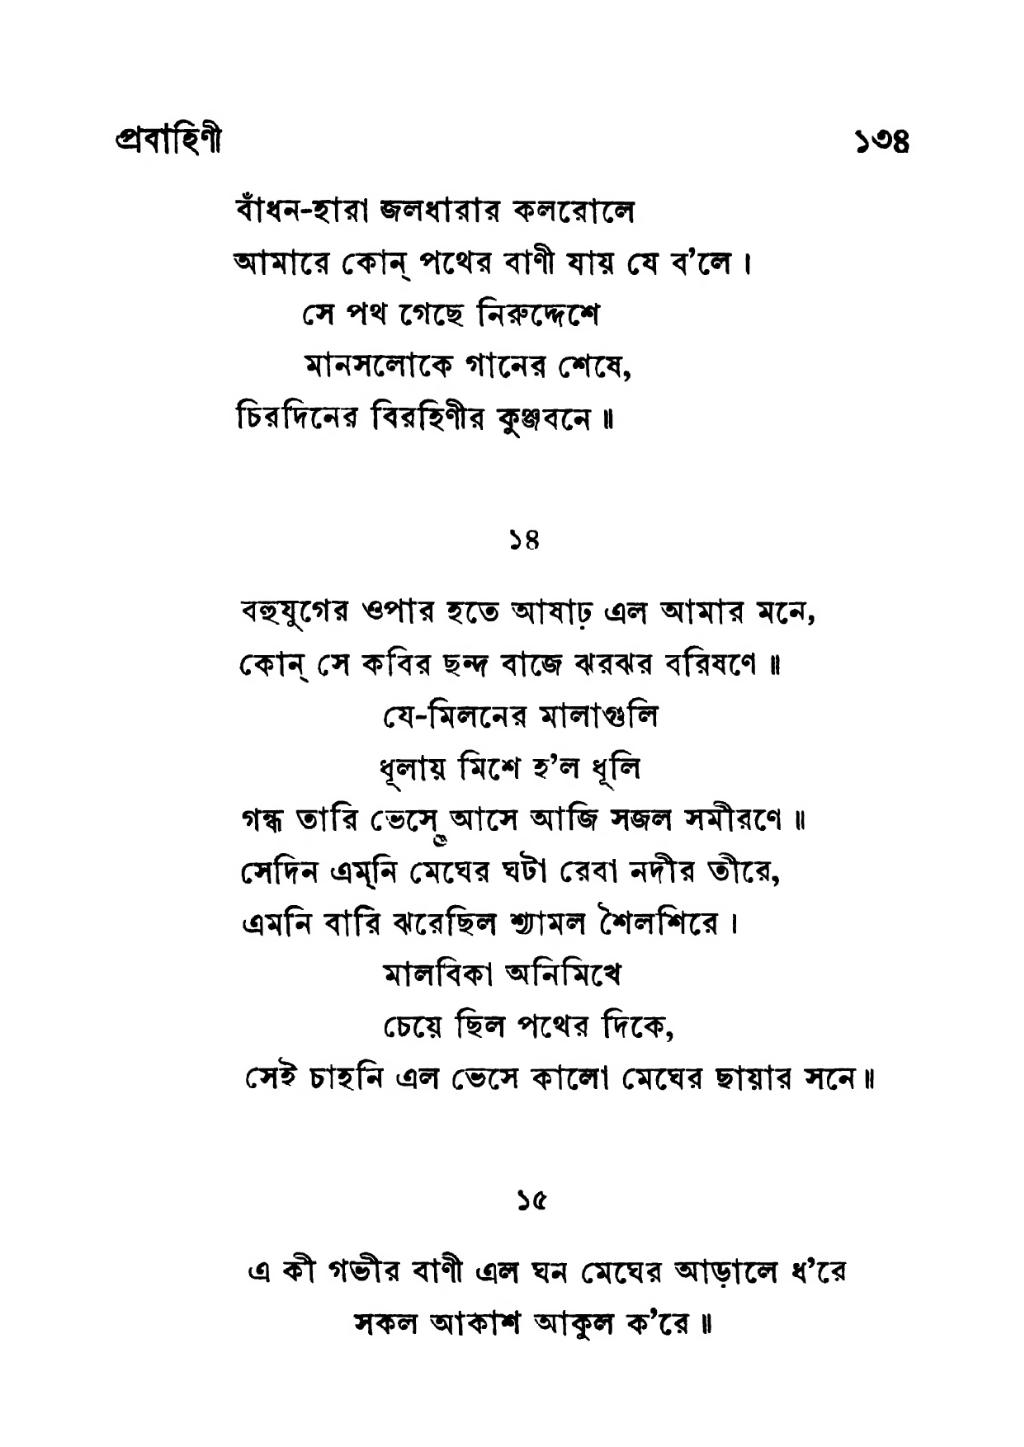 প্রবাহিণী ১৩৪
বাঁধন-হারা জলধারার কলরোলে
আমারে কোন্ পথের বাণী যায় যে ব'লে।
সে পথ গেছে নিরুদ্দেশে
মানসলোকে গানের শেষে,
চিরদিনের বিরহিণীর কুঞ্জবনে॥
১৪
বহুযুগের ওপার হতে আষাঢ় এল আমার মনে,
কোন্ সে কবির ছন্দ বাজে ঝরঝর বরিষণে॥
যে-মিলনের মালাগুলি
ধূলায় মিশে হ'ল ধূলি
গন্ধ তারি ভেসে আসে আজি সজল সমীরণে॥
সেদিন এম্‌নি মেঘের ঘটা রেবা নদীর তীরে,
এমনি বারি ঝরেছিল শ্যামল শৈলশিরে।
মালবিকা অনিমিখে
চেয়ে ছিল পথের দিকে,
সেই চাহনি এল ভেসে কালো মেঘের ছায়ার সনে॥
১৫
এ কী গভীর বাণী এল ঘন মেঘের আড়ালে ধ'রে
সকল আকাশ আকুল ক'রে॥